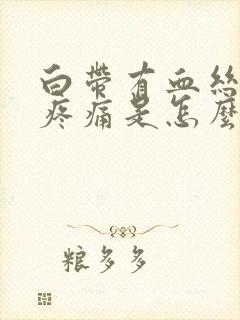 白帶有血絲
疼痛是怎麼
粮多多